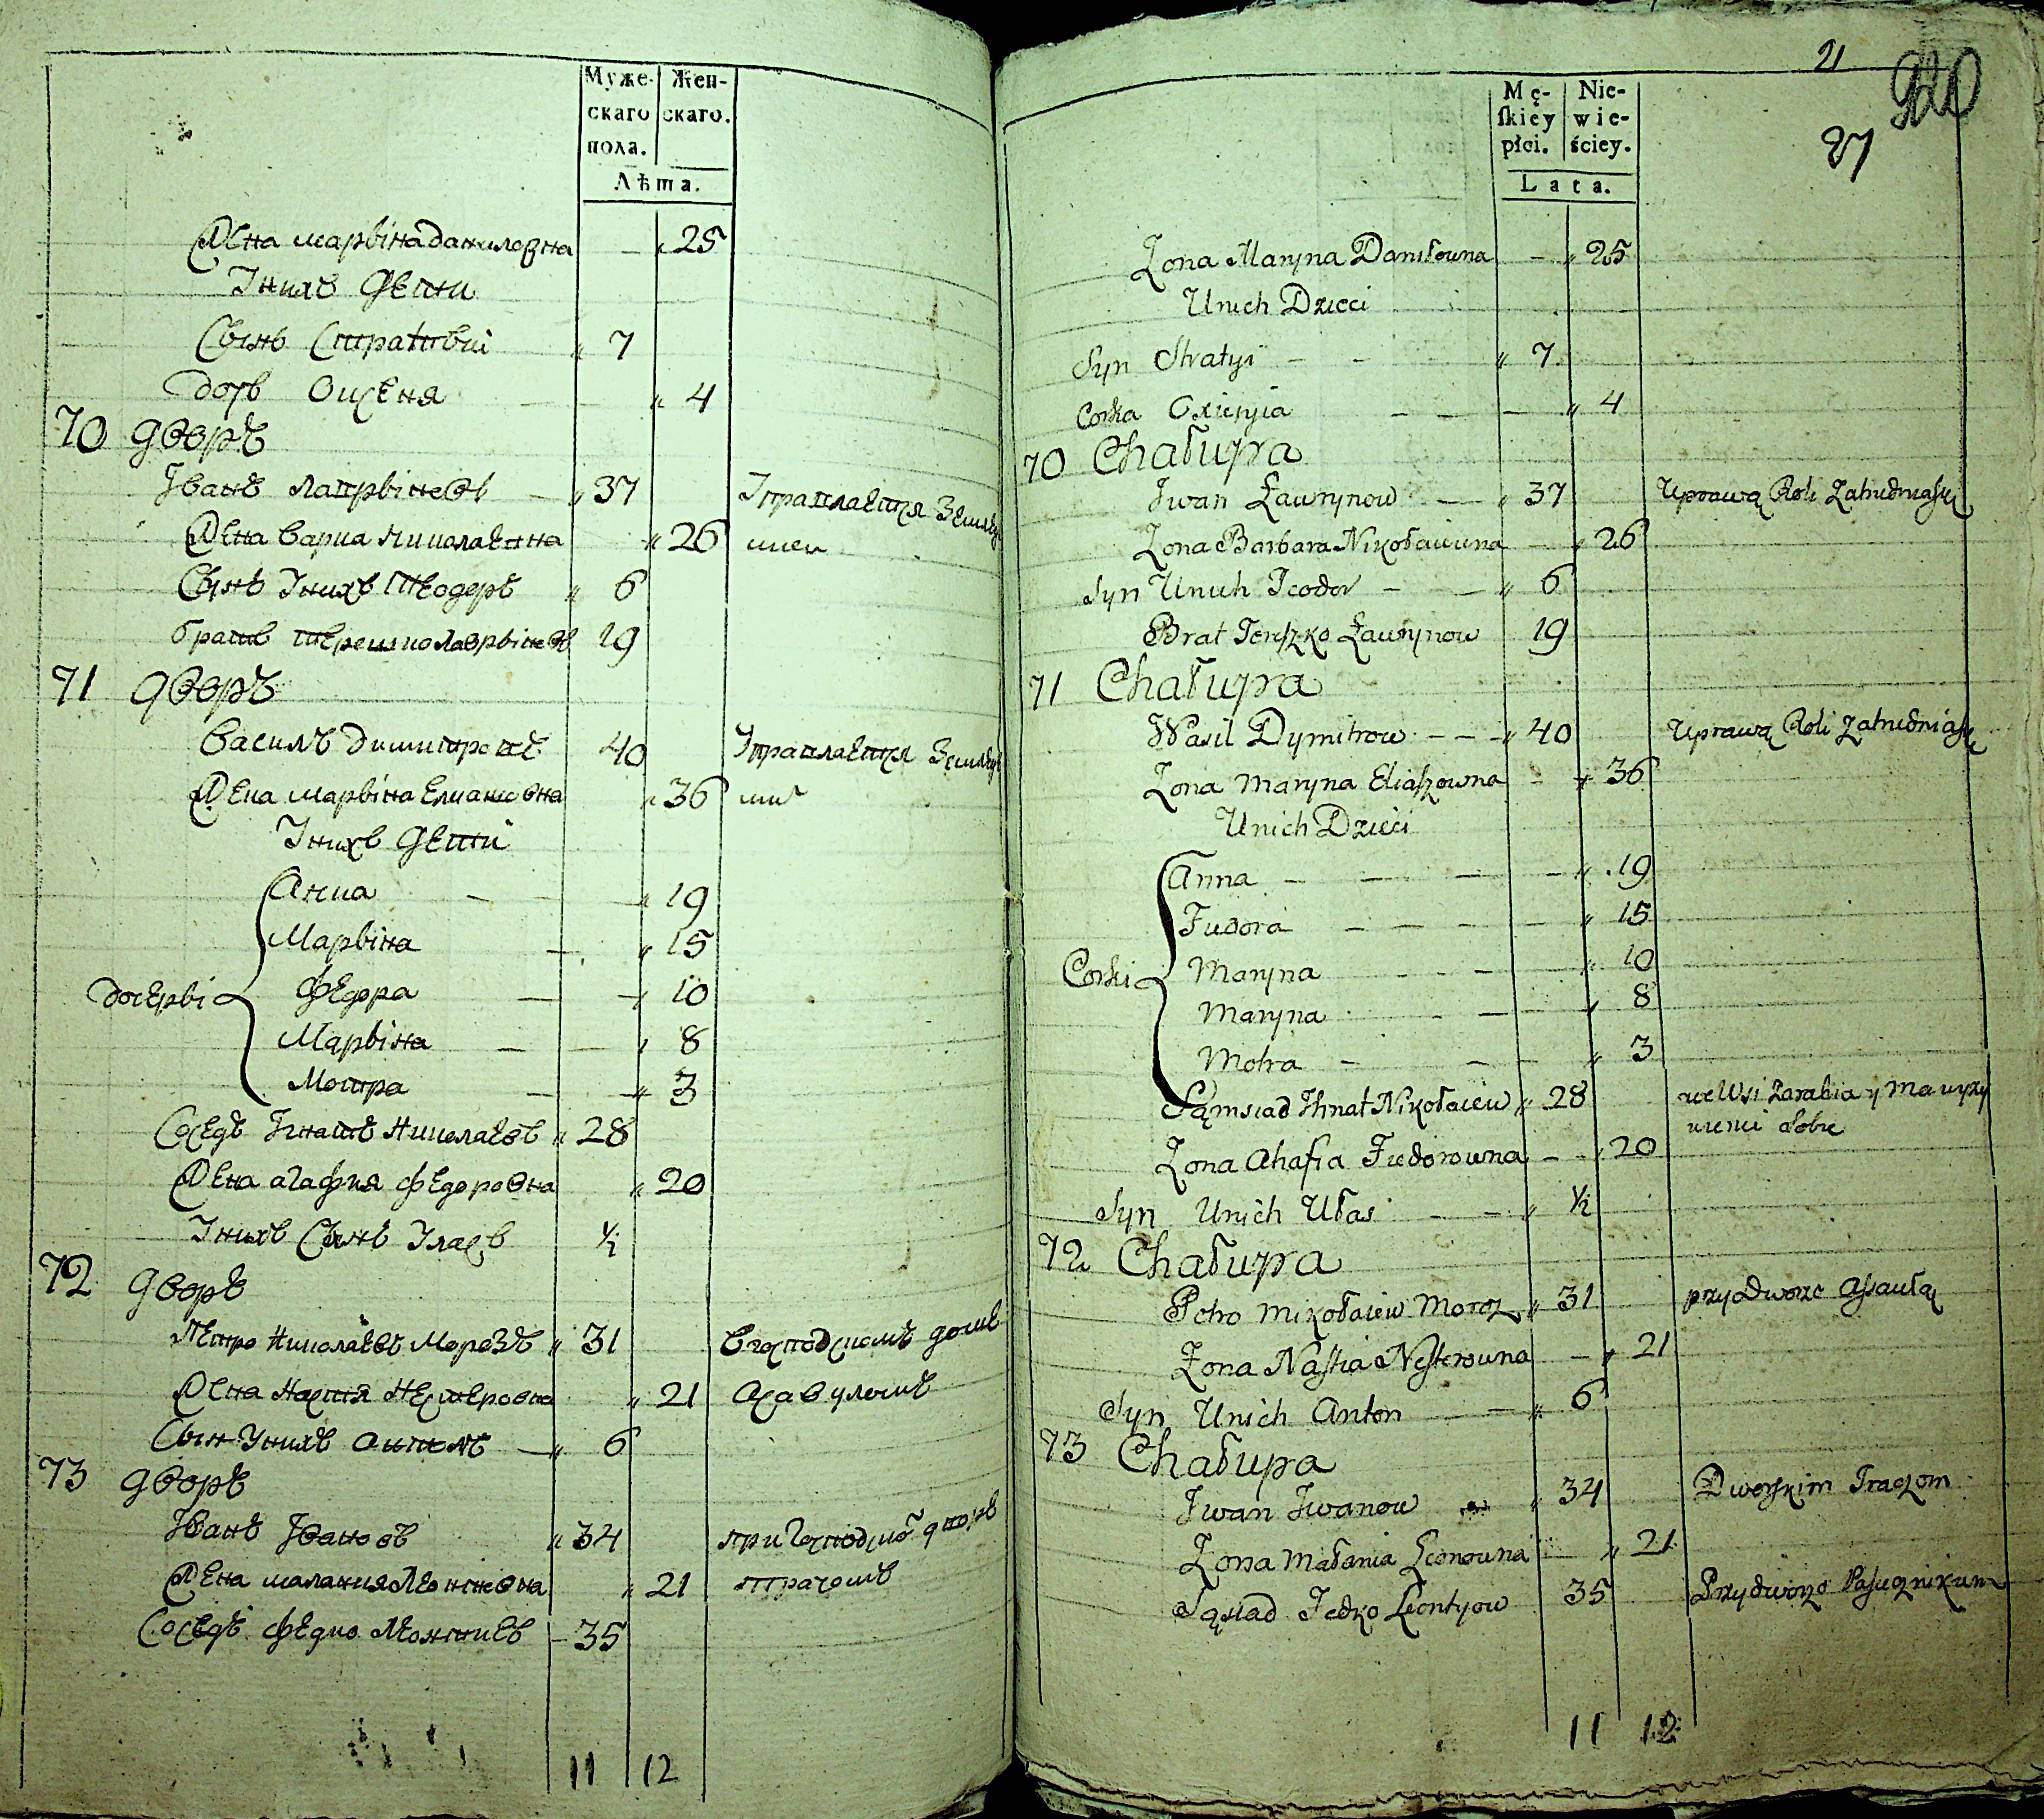 Муже- Жен-
скаго скаго.
пола.
Лѣта.
Жена Марына Даниловна " 25
Унихъ Дети
Сынъ Стратый " 7
Дочь Оксеня " 4
70 Дворъ
Иванъ Лавриновъ " 37 Упраплается Земляр
Жена Варка Николаевна " 26
Сынъ Унихъ Теодоръ " 6
братъ терешко Лавриновъ 19
71 Дворъ
Василь Димитровъ 40 Управляется Земляр
Жена Марына Елиашовна " 36
Унихъ Дети
Анна " 19
Марына " 15
Дочеры Федора " 10
Марына " 8
Мотра " 3
Соседъ Игнатъ Николаевъ " 28
Жена агафия федоровна " 20
Унихъ Сынъ Уласъ ½
72 Дворъ
Петро Николаевъ Морозъ " 31 в господскомъ доме
Жена Настя Нестеровна " 21 Асавуломъ
Сын Унихъ Антонъ " 6
73 Дворъ
Иванъ Ивановъ " 34 при Господско дворе
Жена малания Леоновна " 21 ткачомъ
Соседъ федко Леонтиев 35
11 12
21
27
Mę- Nie-
skiey wie-
płci. ściey.
Lata.
Zona Maryna Daniłowna " 25
Unich Dzieci
Syn Stratyi " 7
Corka Oxienia " 4
70 Chałupa
Iwan Ławrynow " 37 Uprawą Roli Zatrudniaią
Zona Barbara Nikołaiewna " 26
Syn Unich Teodor " 6
Brat Tereszko Ławrynow 19
71 Chałupa
Wasil Dymitrow " 40 Uprawą Roli zatrudniaią
Zona Maryna Eliaszowna " 36
Unich Dzieci
Anna " 19
Fiedora " 15
Corki Maryna " 10
Maryna " 8
Motra " 3
Sąmsiad Ihnat Nikołaiew " 28 we Wsi Zarabia y ma
Zona Ahafia Fiedorowna " 20
Syn Unich Ułas " ½
72 Chałupa
Petro Mikołaiew Moroz " 31 przy Dworze Assaułą
Zona Nastia Nesterowna " 21
Syn Unich Anton " 6
73 Chałupa
Iwan Iwanow " 34 Dworskim Traczom
Zona Małania Leonowna " 21
Sąsiad Fedko Leontyow 35 Przy dworze Pasiecznikiem
11 12